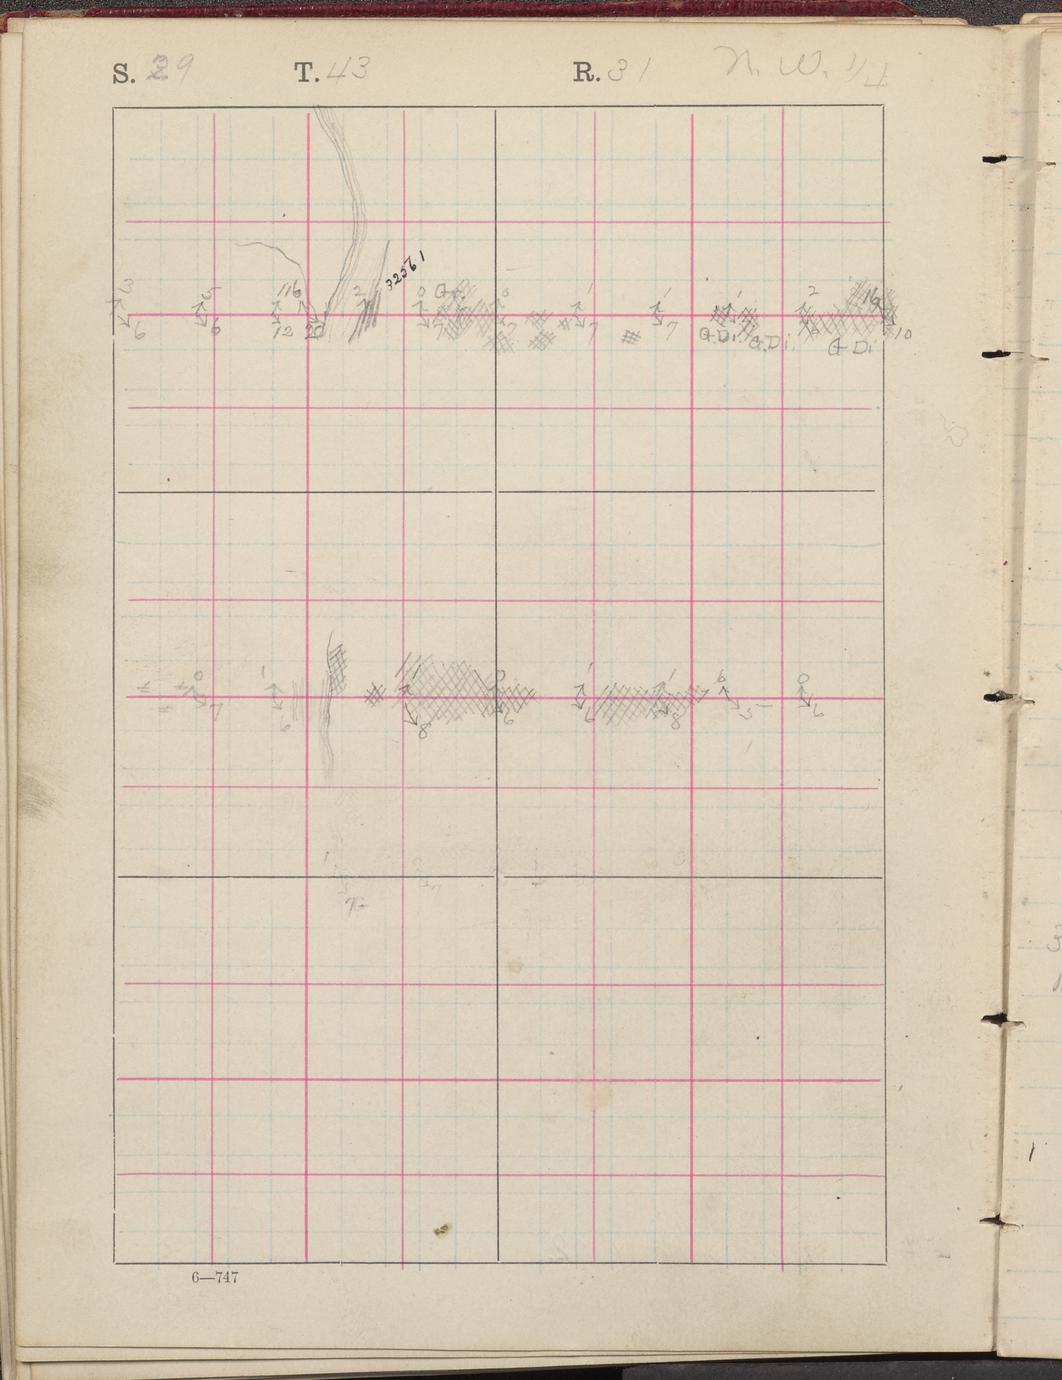 S. 29 T. 43 R. 31 N. W. 1/4
32561
3 5 116 2 0 Gr. 0 1 1 1 2 16
6 6 12 20 7 7 7 G.Di. G.Di. G Di 10
0 1 1 0 1 1 6 0
7 6 8 6 6 8 5 6
1
7
6—747